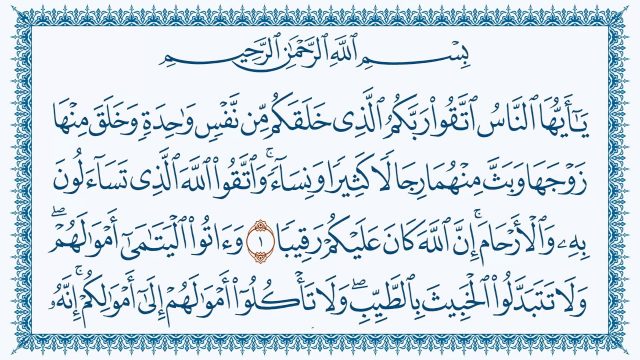 بِسْمِ ٱللَّهِ ٱلرَّحْمَٰنِ ٱلرَّحِيمِ
يَٰٓأَيُّهَا ٱلنَّاسُ ٱتَّقُوا۟ رَبَّكُمُ ٱلَّذِى خَلَقَكُم مِّن نَّفْسٍ وَٰحِدَةٍ وَخَلَقَ مِنْهَا
زَوْجَهَا وَبَثَّ مِنْهُمَا رِجَالًا كَثِيرًا وَنِسَآءً ۚ وَٱتَّقُوا۟ ٱللَّهَ ٱلَّذِى تَسَآءَلُونَ
بِهِۦ وَٱلْأَرْحَامَ ۚ إِنَّ ٱللَّهَ كَانَ عَلَيْكُمْ رَقِيبًا ١ وَءَاتُوا۟ ٱلْيَتَٰمَىٰٓ أَمْوَٰلَهُمْ ۖ
وَلَا تَتَبَدَّلُوا۟ ٱلْخَبِيثَ بِٱلطَّيِّبِ ۖ وَلَا تَأْكُلُوٓا۟ أَمْوَٰلَهُمْ إِلَىٰٓ أَمْوَٰلِكُمْ ۚ إِنَّهُۥ